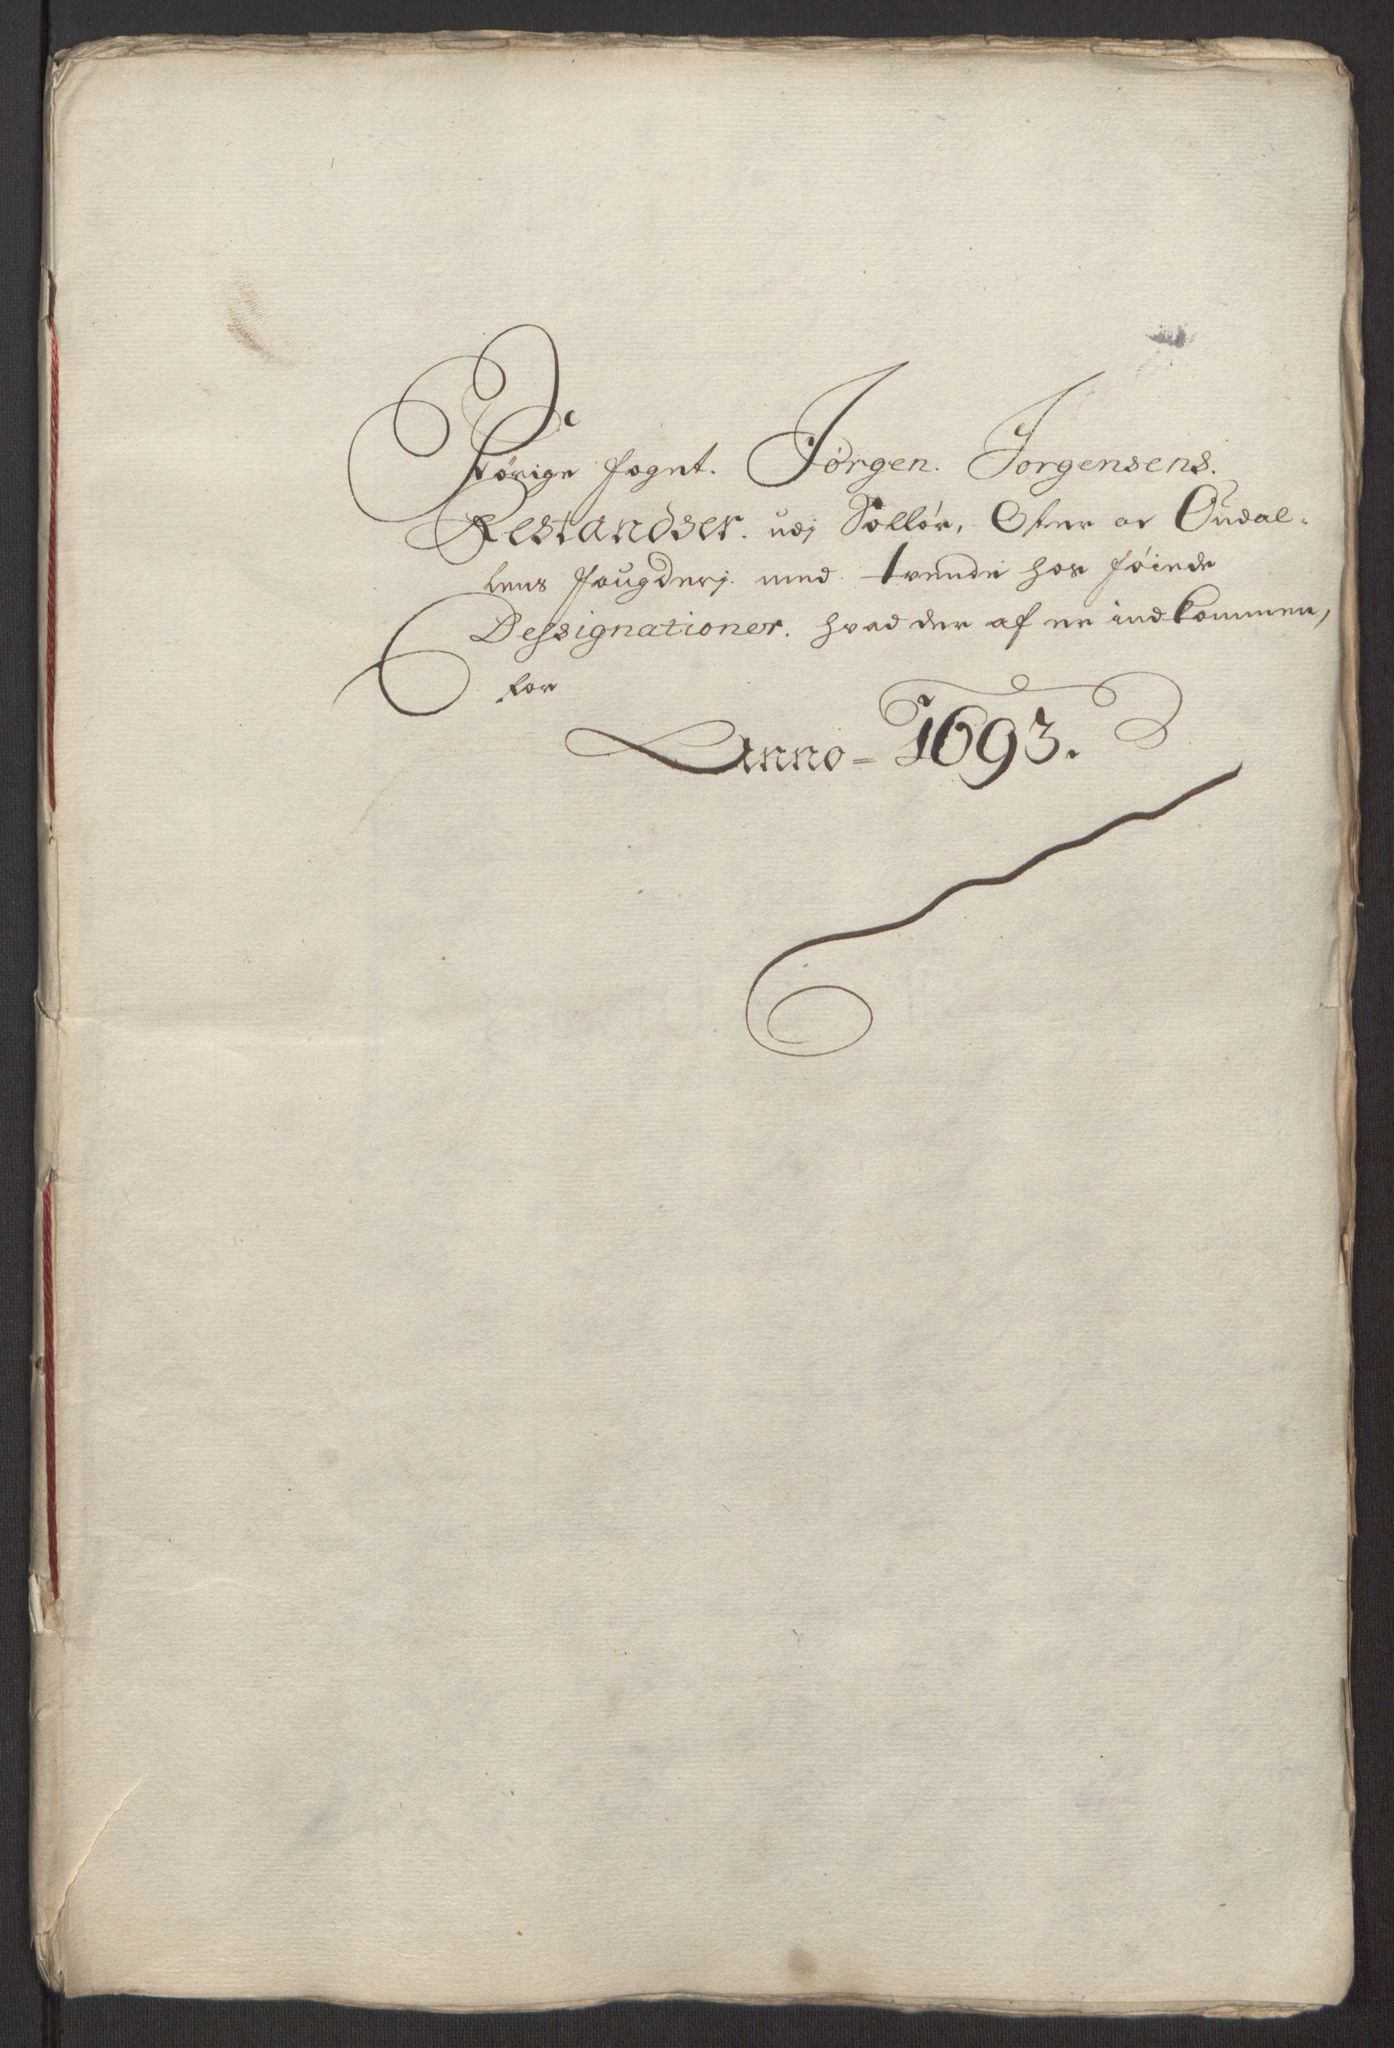 Forige fogut. Jørgen. Jorgensens.
Restandser. udj Soellør, Øster oc Oudal=
lens fougderj. med. trende hos føiede
Designationer. hvad der af er indkommen,
for
Anno = 1693.